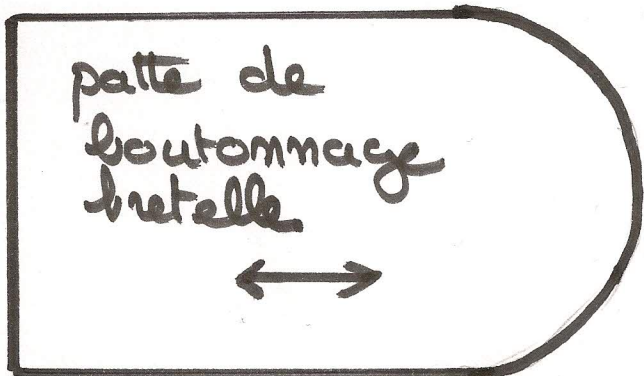 patte de
boutonnage
bretelle